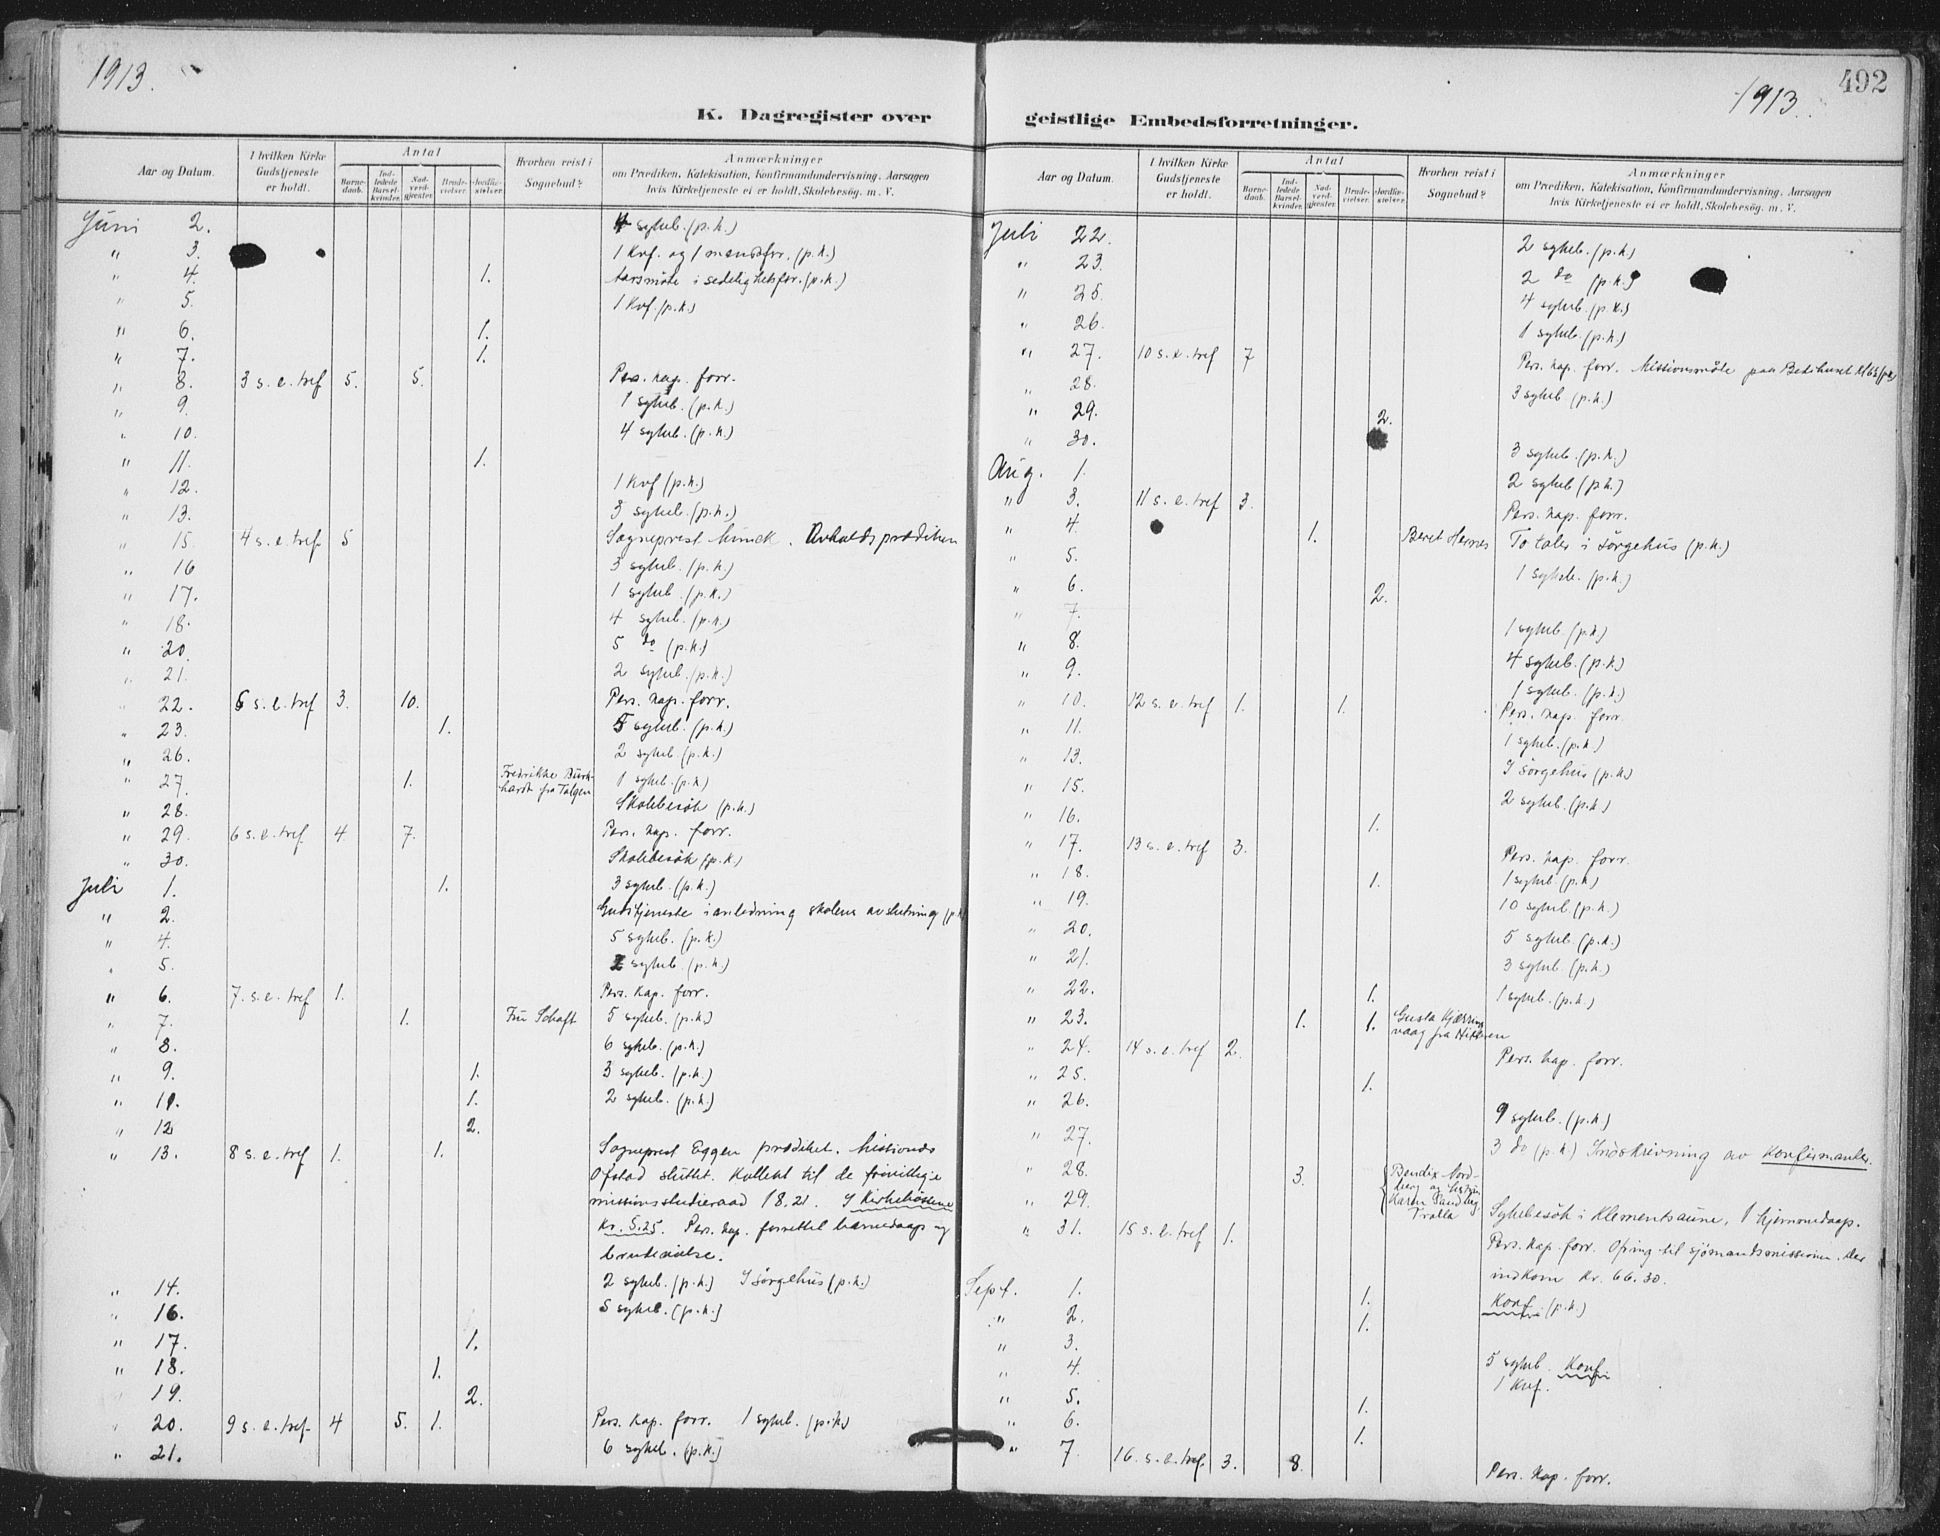 1913.
K. Dagregister over
Aar og Datum. I hvilken Kirke Gudstjeneste er holdt. Antal Barne-daab. Ind-ledede Barsel-kvinder. Nad-verd-gjester. Brude-vielser. Jordfæ-stelser. Hvorhen reist i Sognebud? Anmærkninger
om Prædiken, Katekisation, Konfirmandundervisning, Aarsagen
hvis Kirketjeneste ei er holdt, Skolebesög. m. V.
Juni 2. 4 sykeb. (p.k.)
" 3. 1 Kvf. og 1 mandsfor. (p.k.)
" 4. 1. Aarsmöte i sedelighetsfor. (p.k.)
" 5. 1 Kvf. (p.k.)
" 6. 1.
" 7. 1.
" 8. 3 s. e. tref 5. 5. Pers. kap. forr.
" 9. 1 sykeb. (p.k.)
" 10. 4 sykeb. (p.k.)
" 11. 1.
" 12. 1 Kvf (p.k.)
" 13. 3 sykeb. (p.k.)
" 15. 4 s. e. tref. 5 Sogneprest Avholdsprædiken
" 16 3 sykeb. (p.k.)
" 17. 1 sykeb. (p.k.)
" 18. 4 sykeb. (p.k.)
" 20. 5 do (p.k.)
" 21. 2 sykeb. (p.k.)
" 22. 6 s. e. tref 3. 10. Pers. kap. forr.
" 23. 1. 5 sykeb. (p.k.)
" 26. 2 sykeb. (p.k.)
" 27. 1. Fredrikke Burk-
hardt fra Tålgen 1 sykeb. (p.k.)
" 28. Skolebesök (p.k.)
" 29. 6 s. e. tref. 4 7. Pers. kap. forr.
" 30. Skolebesök (p.k.)
Juli 1. 1. 3 sykeb. (p.k.)
" 2. Gudstjeneste i anledning skolens avslutning (p.k.
" 4. 5 sykeb. (p.k.)
" 5. sykeb. (p.k.)
" 6. 7. s. e. tref 1. Pers. Kap. forr.
" 7. 1. Fru Schaft 5 sykeb. (p.k.)
" 8. 6 sykeb. (p.k.)
" 9. 1. 3 sykeb. (p.k.)
" 1. 2 sykeb. (p.k.)
" 12 2.
" 13. 8 s. e. tref 1. 1. Sogneprest Eggen prædiket. Missionds
Ofstad sluttet. Kollekt til de frivillige
missionsstudieraad 18.21. I Kirkebössene
Kr. 5.25. Pers. kap. forrettet barnedaap og
brudevielse.
" 14. 2 sykeb. (p.k.) I Sörgehus (p.k.)
" 16. 5 sykeb. (p.k.)
" 17. 1.
" 18. 1.
" 19. 2.
" 20. 9 s. e. tref. 4 5. 1. Pers. Kap. forr. 1 sykeb. (p.k.)
" 21. 6 sykeb. (p.k.)
492
1913.
geistlige Embedsforretninger.
Aar og Datum. I hvilken Kirke Gudstjeneste er holdt. Antal Barne-daab. Ind-ledede Barsel-kvinder. Nad-verd-gjester. Brude-vielser. Jordfæ-stelser. Hvorhen reist i Sognebud? Anmærkninger
om Prædiken, Katekisation, Konfirmandundervisning, Aarsagen
hvis Kirketjeneste ei er holdt, Skolebesög. m. V.
Juli 22. 2 sykeb. (p.k.)
" 23. 2 do (p.k.)
" 25. 4 sykeb. (p.k.)
" 26. 1 sykeb. (p.k.)
" 27. 10 s. e. tref 7 Pers. kap. forr. Missionsmöte paa Bedehuset
" 28. 3 sykeb (p.k.)
" 29. 2.
" 30. 3 sykeb. (p.k.)
Aug. 1. 2 sykeb (p.k.)
" 3. 11 s. e. tref 3. Pers. kap. forr.
" 4. 1. Beret Hernes To taler i sörgehus (p.k.)
" 5. 1 sykeb. (p.k.)
" 6. 2.
" 7. 1 sykeb. (p.k.)
" 8. 4 sykeb. (p.k.)
" 9. 1 sykeb. (p.k.)
" 10. 12 s. e. tref 1. 1. Pers. kap. forr.
" 11. 1 sykeb. (p.k.)
" 13. I sörgehus (p.k.)
" 15. 2 sykeb. (p.k.)
" 16. 1.
" 17. 13 s. e. tref 3. Pers. kap. forr.
" 18. 1. 1 sykeb. (p.k.)
" 19. 10 sykeb. (p.k.)
" 20. 5 sykeb. (p.k.)
" 21. 3 sykeb. (p.k.)
" 22. 1. 1 sykeb. (p.k.)
" 23. 1. 1. Gusta Kjærrings
vaag fra Hitteren
" 24. 14 s. e. tref 2. Pers. kap. forr.
" 25. 1.
" 26. 9 sykeb. (p.k.)
" 27. 3 do (p.k.) Indskrivning av Konfirmanter.
" 28. 3. Bendix Nord-
berg og hustru
Karen Sandberg
Tralla
" 29. Sykebesök i Klementsaune. 1 hjemmedaap.
" 31. 15 s. e. tref 1. Pers. Kap. forr. Ofring til sjömandsmissionen. Der
indkom Kr. 66.30.
Sept. 1. 1. Konf. (p.k.)
" 2. 1.
" 3. 5 sykeb. Konf.
" 4. 1 Kvf.
" 5. 1.
" 6. 1.
" 7 16. s. e. tref. 3. 8. Pers. Kap. forr.